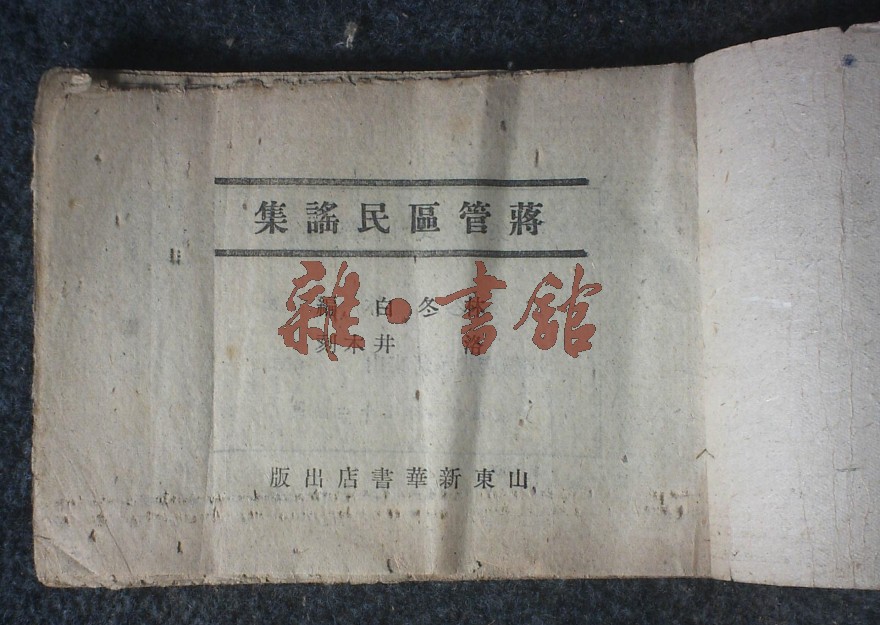 蔣管區民謠集
林冬白編
洛井木刻
雜·書館
山東新華書店出版